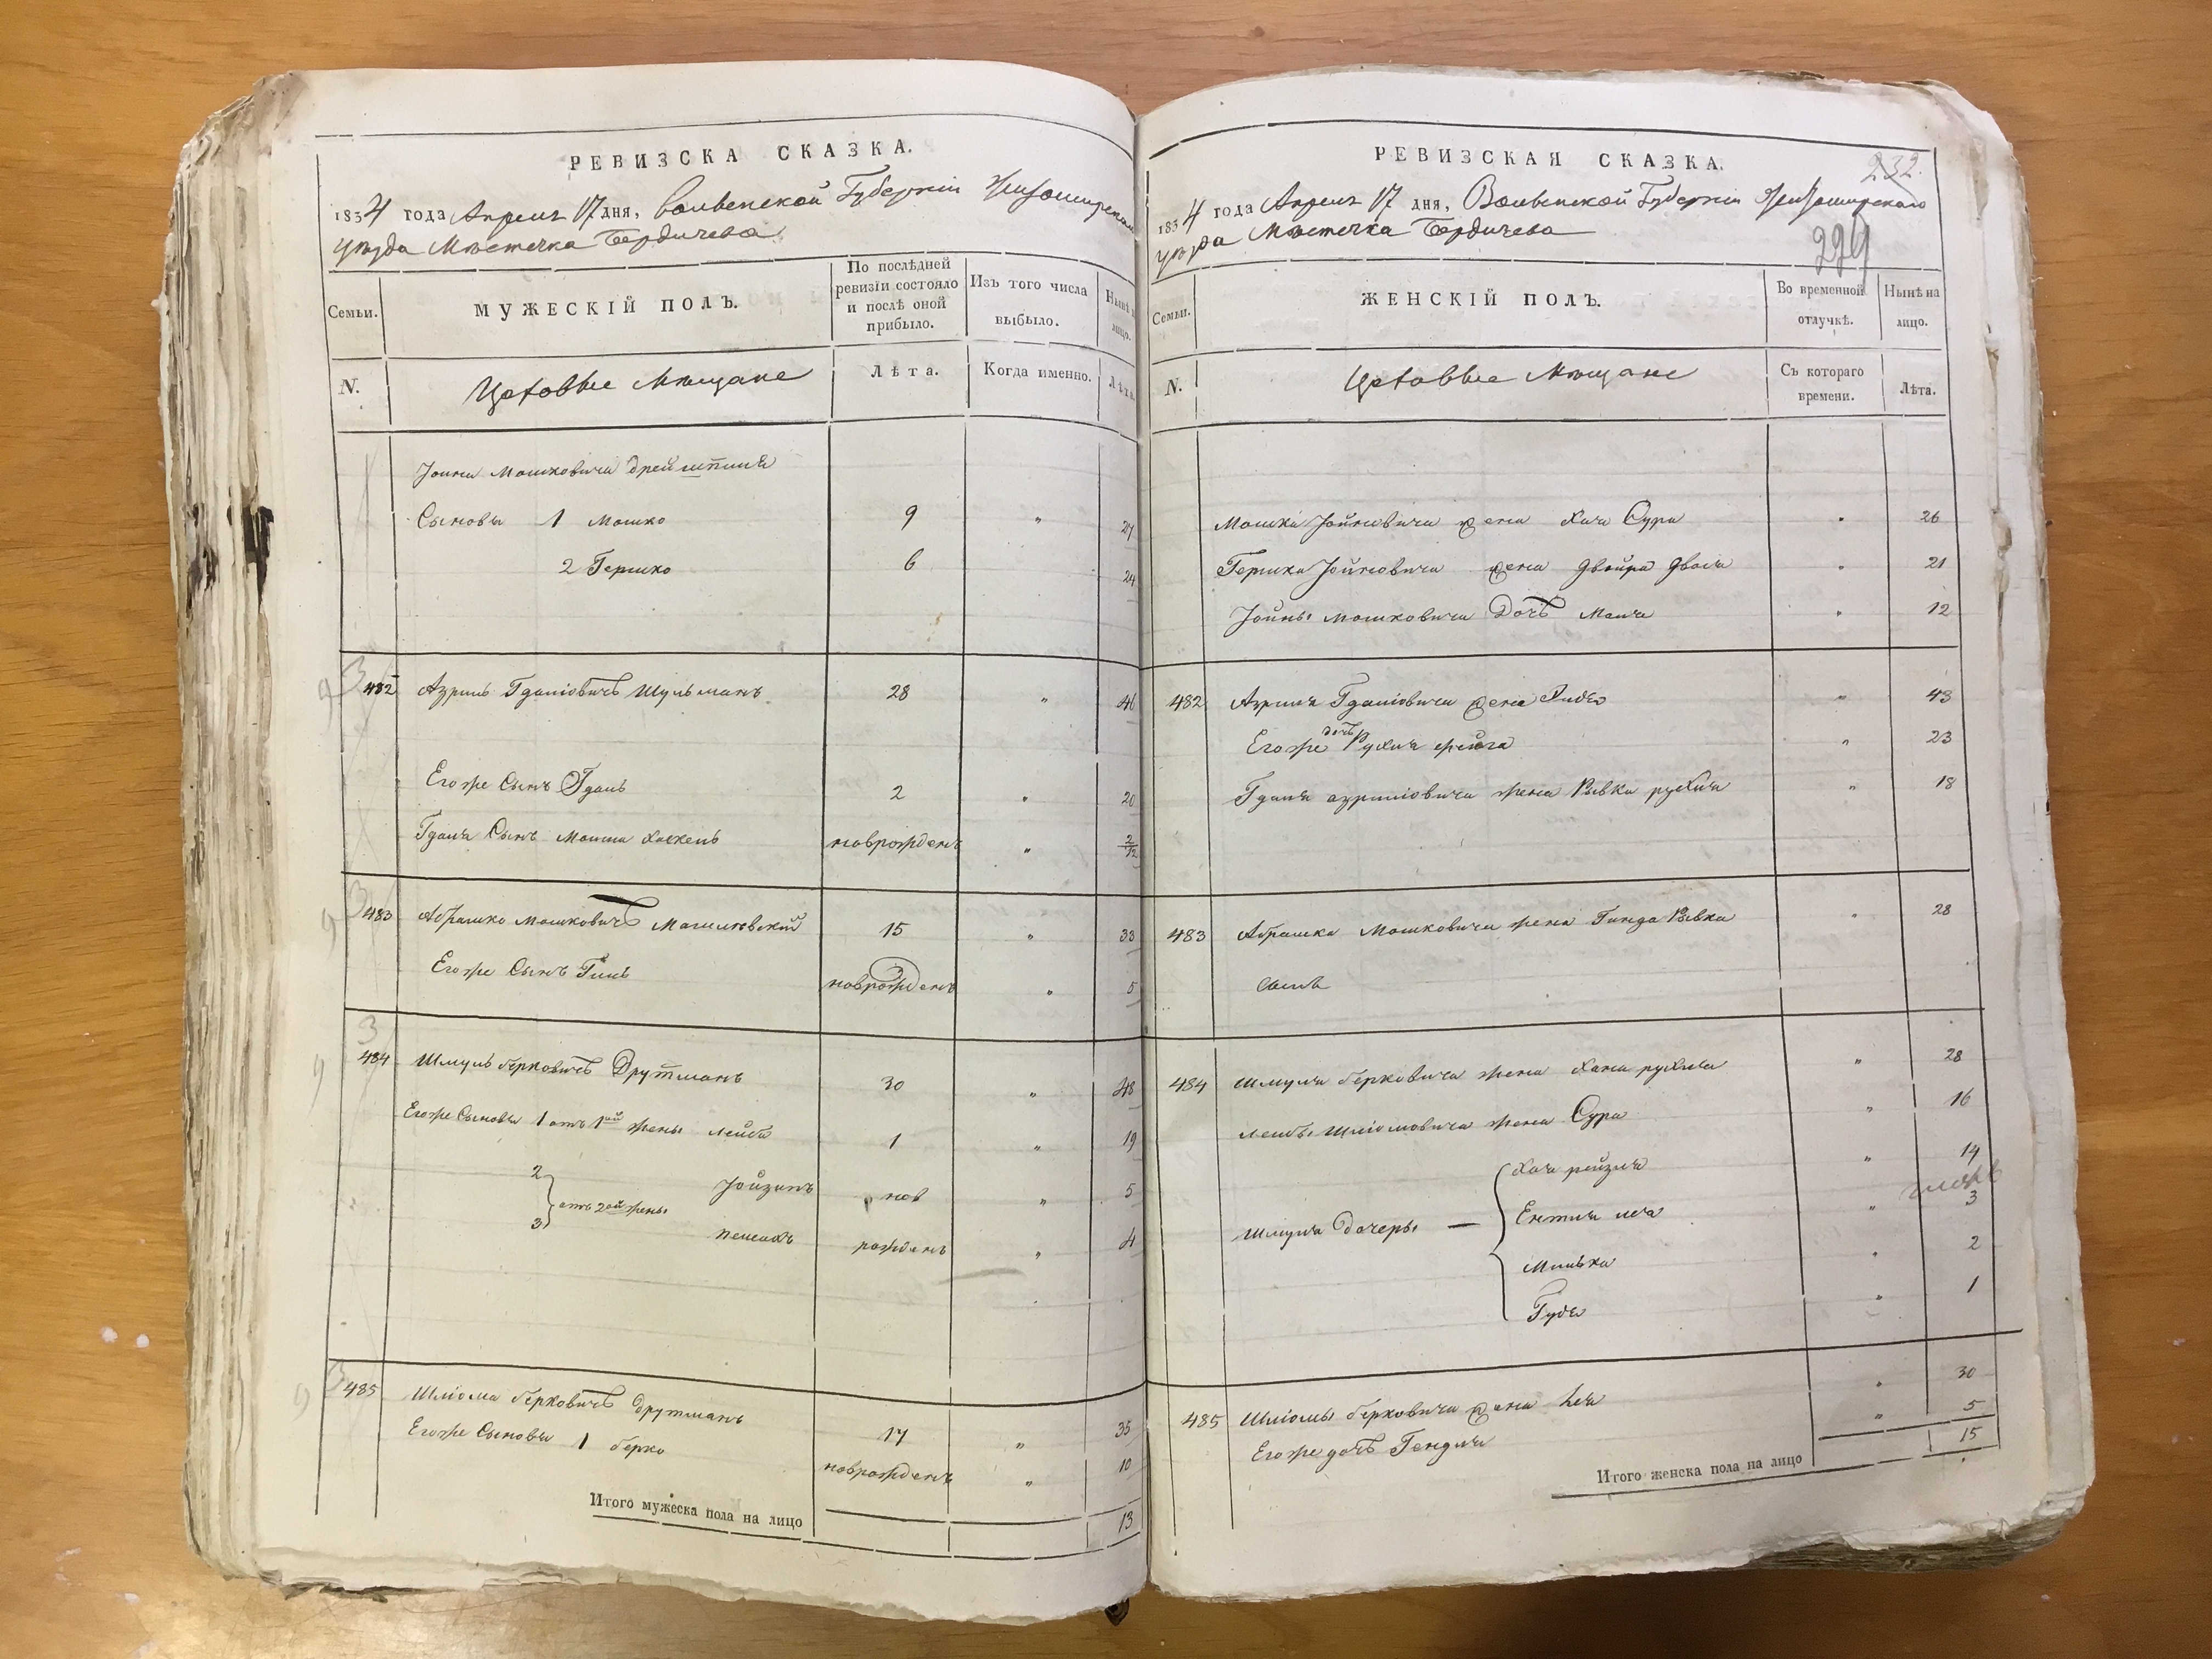 РЕВИЗСКА СКАЗКА.
1834 года Апреля 17 дня, Волынской Губернии Житомирскаго
уѣзда Мѣстечка Бердичева
Семьи.
МУЖЕСКІЙ ПОЛЪ.
По послѣдней
ревизіи состояло
и послѣ оной
прибыло.
Изъ того числа
выбыло.
Нынѣ
лицо.
N.
Цеховые Мѣщане
Лѣта.
Когда именно.
Лѣта.
Іойни Мошковича
Сыновья 1 Мошко 9 " 27
2 Гершко 6 24
482 Азриль Гдаліовичъ Шульманъ 28 " 46
Егоже Сынъ Гдаль 2 " 20
Гдаля Сынъ новрожденъ " 2/12
483 Абрашко Мошковичъ 15 " 33
Егоже Сынъ новрожденъ " 5
484 Шмуль берковичъ Друтманъ 30 " 48
Егоже Сыновья 1 отъ 1ой жены лейба 1 " 19
2 Іойзипъ нов " 5
отъ 2ой жены
3 пейсахъ рожденъ " 4
485 Шліома берковичъ Друтманъ 17 " 35
Егоже Сыновья 1 берко новрожденъ " 10
Итого мужеска пола на лицо 13
РЕВИЗСКАЯ СКАЗКА.
232.
1834 года Апреля 17 дня, Волынской Губернии Житомирскаго
уѣзда Мѣстечка Бердичева
229
Семьи.
ЖЕНСКІЙ ПОЛЪ.
Во временной
отлучкѣ.
Нынѣ на
лицо.
N.
Цеховые Мѣщане
Съ котораго
времени.
Лѣта.
Мошка Іойновича жена Хая Сура " 26
Гершка Іойновича жена Двойра Двося " 21
Іойны Мошковича Дочь " 12
482 Азриля Гдаліовича жена " 43
Егоже дочь Рухля фейга " 23
Гдаля азриліовича жена Ривка рухля " 18
483 Абрашка Мошковича жена Ривка " 28
484 Шмуля берковича жена Хана рухля " 28
лейбы Шліомовича жена Сура " 16
Хая рейзля " 14
Шмуля дочеры — Ентля " 3
Милька " 2
" 1
485 Шліомы берковича жена Лея " 30
Егоже дочь Гендля " 5
Итого женска пола на лицо 15